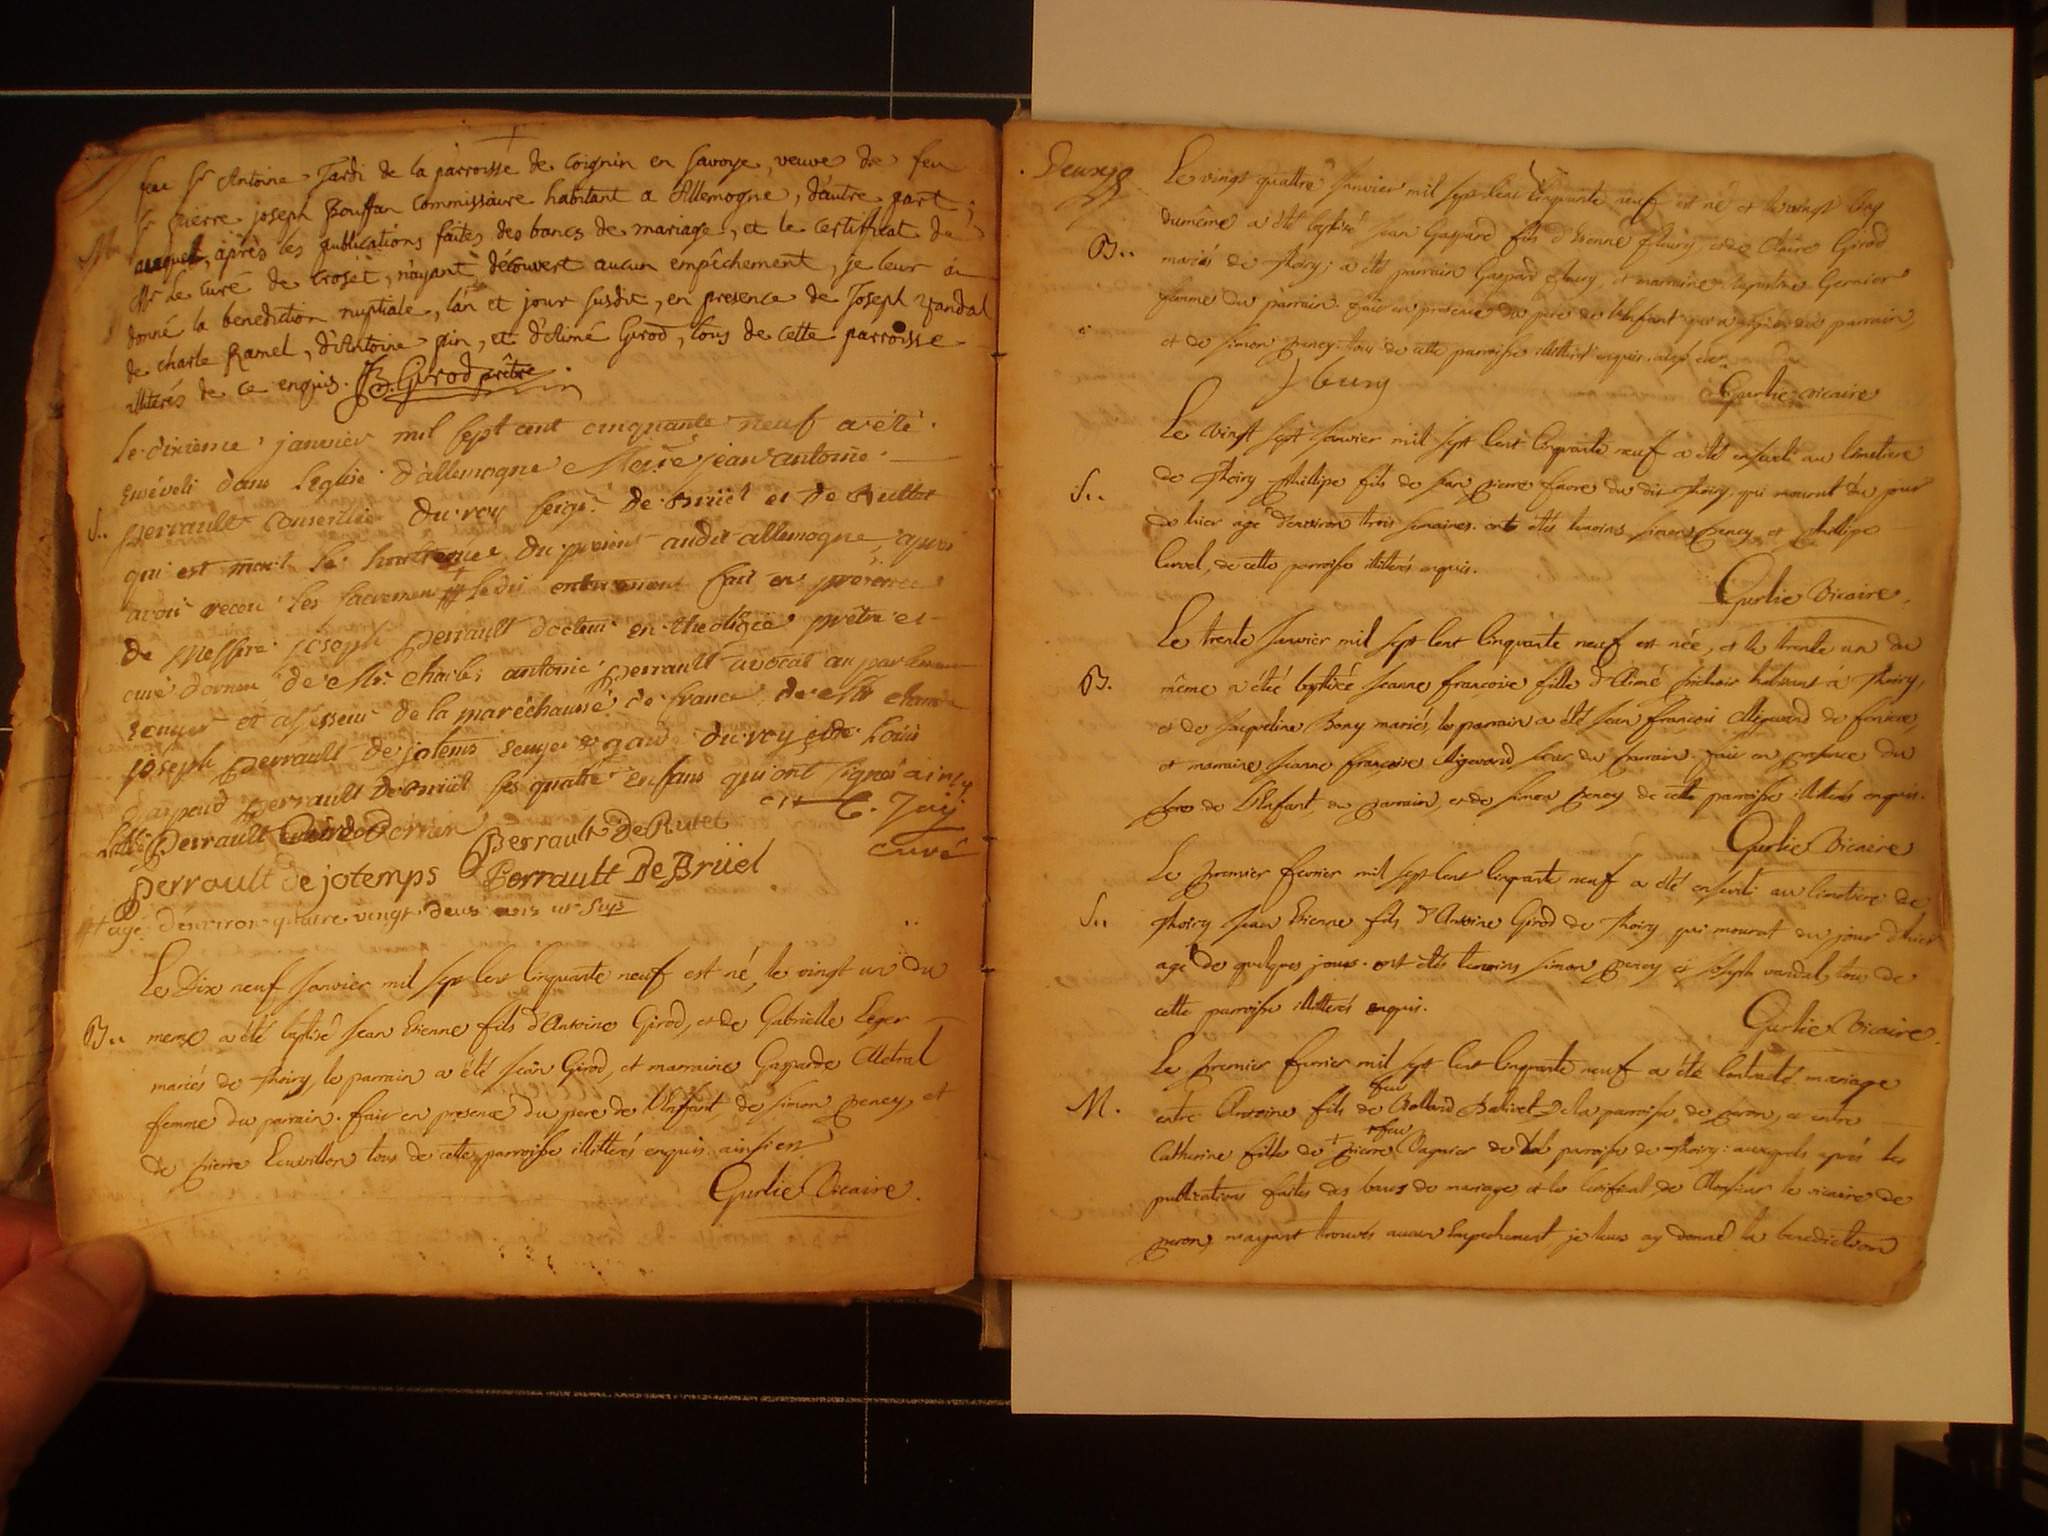 feu Sr Antoine Jardi de la parroisse de Coignin en Savoye, veuve de feu
Sr pierre joseph Bouffan Commissaire habitant a Allemogne, d'autre part;
M auxquel, après les publications faites des bancs de mariage, et le certificat de
Mr Le curé de Croset, n'ayant découvert aucun empêchement, je leur ai
donné la benediction nuptiale, l'an et jour susdit, en presence de Joseph vandal
de charle Ramel, d'Antoine pin, et d'Aimé Girod, tous de cette parroisse
illiterés de ce enquis. JB. Girod prêtre
Le dixieme janvier mil sept cent cinquante neuf a été
Enséveli dans l'eglise d'allemogne Messire jean antoine
S.. perrault Conseiller du roy seigr. de Brüel et de Ruttet
qui est mort le du present audit allemogne, apres
avoir receu les sacremens # ledit enterrement fait en présence
de Messire joseph perrault docteur en theologie prêtre et
curé dornex de Mr. charles antoine perrault avocat au parlement
Ecuyer et assesseur de la maréchaussé de france, de Mr
joseph perrault de jotems Ecuyer garde du roy et de loüis
gaspard perrault De Brüel ses quatre enfans qui ont signés ainsy
perrault Curé d'Ornex Perrault De Rutet C. Jaÿ
perrault de jotemps Perrault De Brüel curé
# agé d'environ quatre vingt deux ans ut sups
Le Dix neuf Janvier mil sept cent Cinquante neuf est né, le vingt un du
B.. meme a été baptisé Jean Etienne fils d'Antoine Girod, et de Gabrielle Leger
mariés de Thoiry, le parrain a été Jean Girod, et marraine Gasparde Metral
femme du parrain. fait en presence du pere de l'Enfant, de Simon peney, et
de pierre tous de cette parroisse illitterés enquis ainsi est
Gurlie Vicaire.
Deuxe
Le vingt quattre Janvier mil sept Cent Cinquante neuf est né et le vingt cinq
du même a été baptisé Jean Gaspard fils d'Etienne fleury, et de Claire Girod
B.. mariés de Thoiry; a été parrain Gaspard fleury, et marraine Gernier
femme du parrain. fait en presence du pere de l'Enfant qui a signé du parrain,
et de Simon peney. tous de cette parroisse illitterés enquis.
fleury
Gurlie vicaire
Le vingt sept Janvier mil sept Cent Cinquante neuf a été enseveli au Cimetiere
S.. de Thoiry Phillipe fils de Jean pierre favre du dit Thoiry, qui mourut du jour
de hier agé d'environ trois semaines. ont étés temoins Simon peney et phillipe
de cette parroisse illitterés enquis.
Gurlie Vicaire.
Le trente Janvier mil sept Cent Cinquante neuf est née, et le trente un du
B. même a été baptisée Jeanne francoise fille d'Aimé habitant à Thoiry,
et de Jacqueline Bony mariés, le parrain a été Jean francois Migward de
et marraine Jeanne francoise Migward soeur du parrain. fait en presence du
pere de l'Enfant, du parrain, et de Simon peney de cette parroisse illitterés enquis.
Gurlie Vicaire
Le premier fevrier mil sept Cent Cinquante neuf a été enseveli au Cimetiere de
S.. Thoiry Jean Etienne fils d'Antoine Girod de Thoiry qui mourut du jour d'hier
agé de quelques jours. ont étés temoins Simon peney et Joseph vandal, tous de
cette parroisse illitterés enquis.
Gurlie Vicaire.
Le premier fevrier mil sept Cent Cinquante neuf a été Contracté mariage
M. entre Antoine fils de feu Rolland Balivet de la parroisse de peron, et entre
Catherine fille de feu pierre Vagnier de la parroisse de Thoiry: auxquels aprés les
publications faites des bancs de mariage et le Certificat de Monsieur le vicaire de
peron, n'ayant trouvés aucun Empechement, je leurs ay donné la benediction